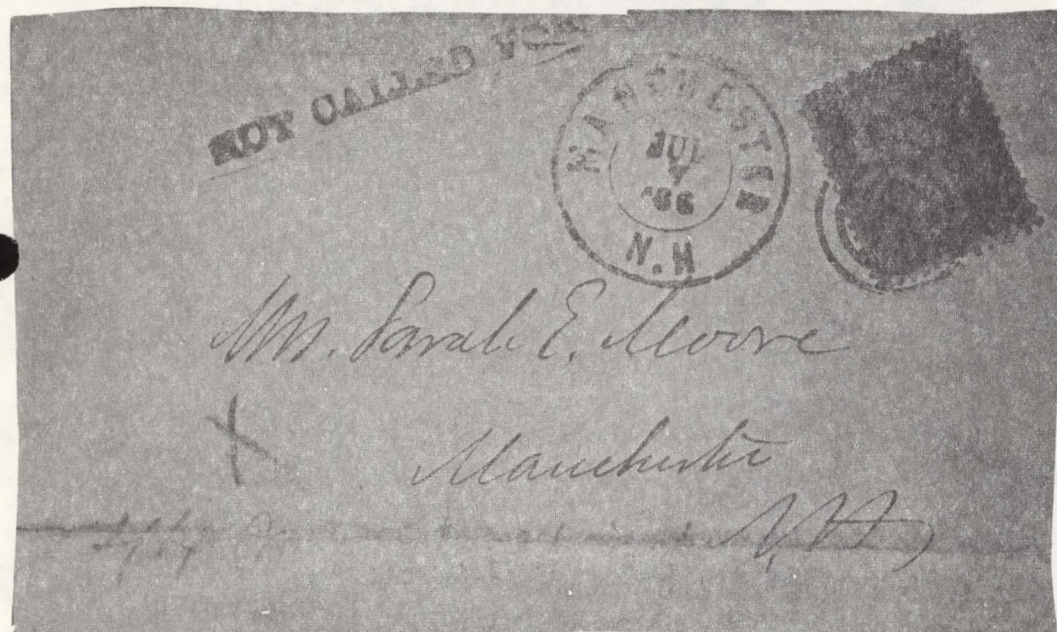 NOT CALLED FOR
MANCHESTER
JUL
'86
N.H
Mrs. Sarah E. Moore
X
Manchester
N.H,